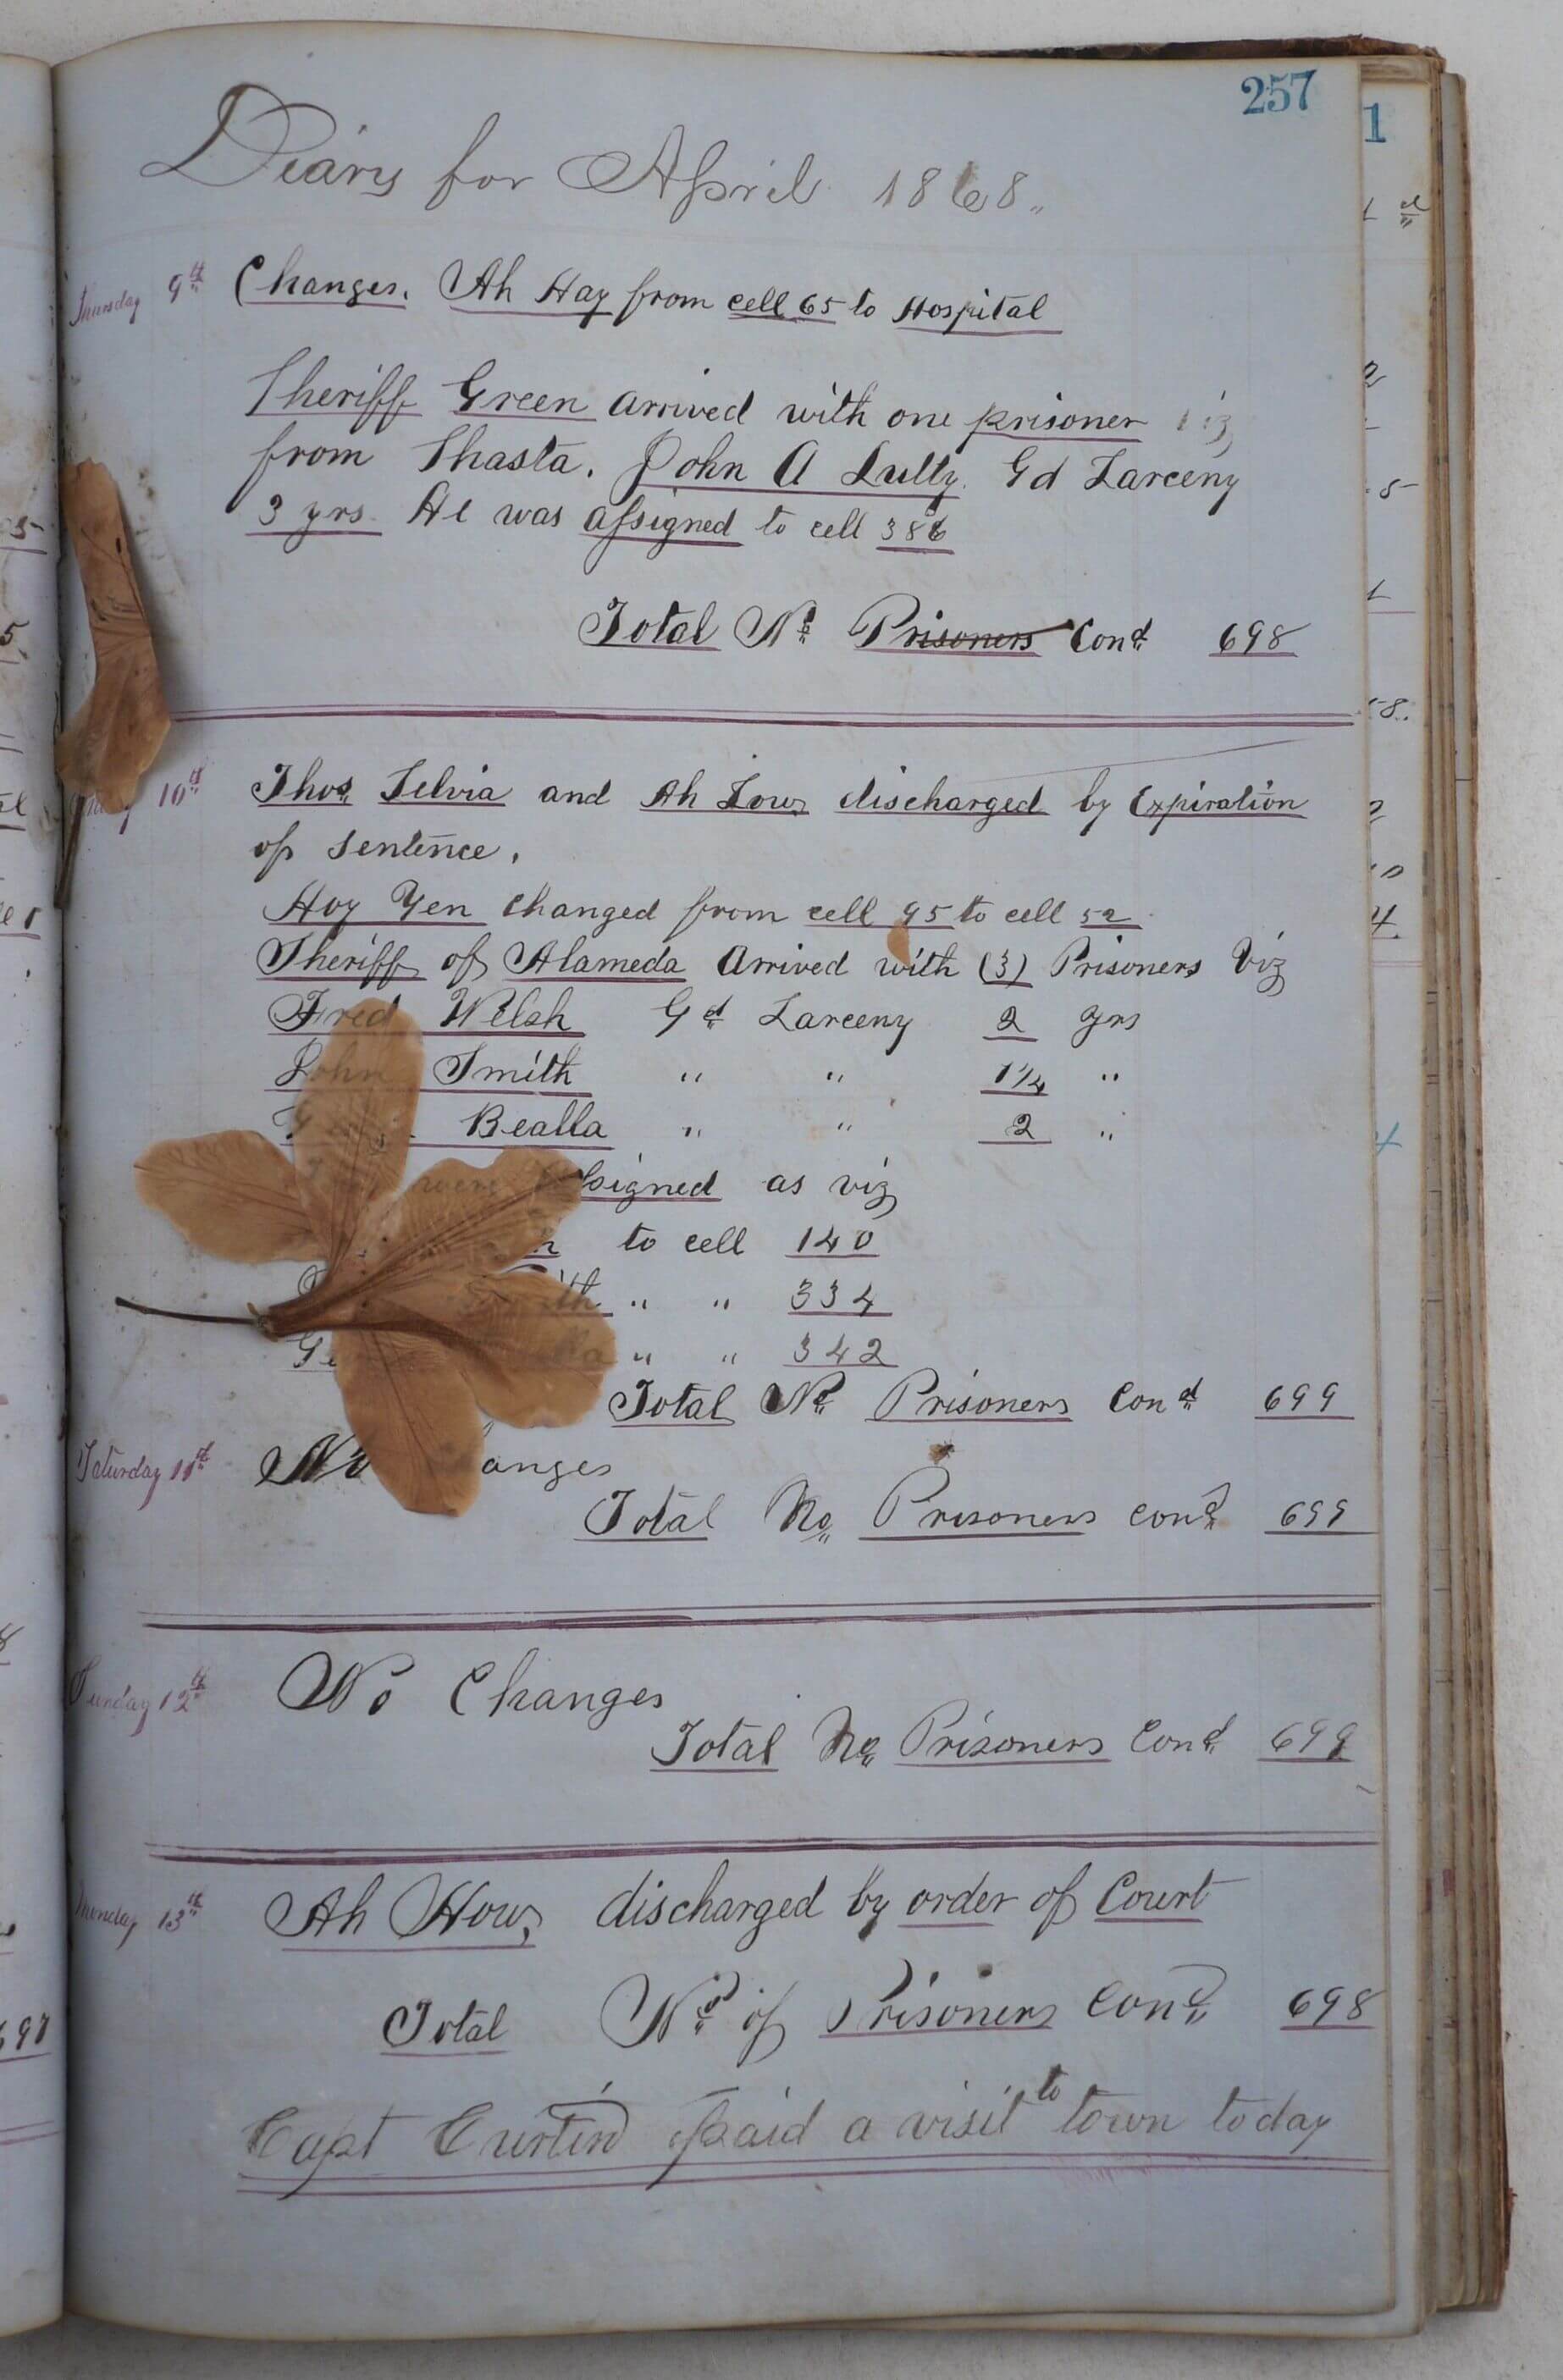 257
Diary for April 1868
Thursday 9th Changes. Ah Hay from cell 65 to Hospital
Sheriff Green arrived with one prisoner viz
from Shasta. John A Lully Gd Larceny
3 yrs He was assigned to cell 386
Total No Prisoners Cond 698
10th Thos Selvia and Ah Low discharged by Expiration
of Sentence.
Hoy Yen changed from cell 95 to cell 52
Sheriff of Alameda Arrived with (3) Prisoners Viz
Fred Welsh Gd Larceny 2 yrs
John Smith " " 1 1/4 "
Bealla " " 2 "
were assigned as viz
to cell 140
" " 334
" " 342
Total No Prisoners Cond 699
Saturday 11th No anges
Total No Prisoners cond 699
Sunday 12th No Changes
Total No Prisoners Cond 699
Monday 13th Ah How discharged by order of Court
Total No of Prisoners Cond 698
Capt Curtin paid a visit to town today